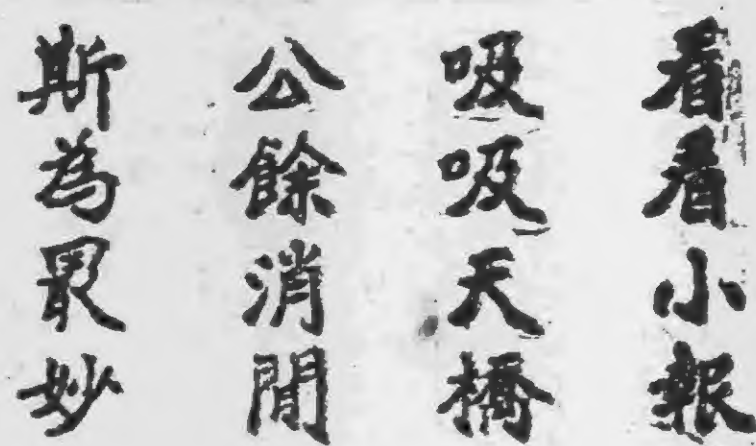 看看小報
吸吸天橋
公餘消閒
斯為最妙